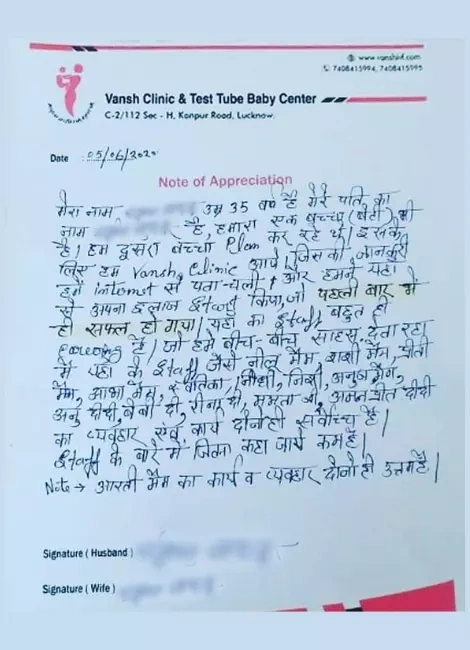 www.vanshivf.com
7408415994, 7408415995
Vansh Clinic & Test Tube Baby Center
C-2/112 Sec - H, Kanpur Road, Lucknow.
Date : 05/06/2020
Note of Appreciation
मेरा नाम उम्र 35 वर्ष है मेरे पति का
नाम है, हमारा एक बच्चा (बेटी) भी
है। हम दुसरा बच्चा Plan कर रहे थे। इसके
लिए हम Vansh Clinic आये। जिसकी जानकारी
हमें Internet से पता चली। और हमने यहाँ
से अपना इलाज Start किया, जो पहली बार मे
ही सफल हो गया। यहाँ का Staff बहुत ही
है। जो हमे बीच-बीच साहस देता रहा
मे यहाँ के Staff जैसे नीलू मैम, शशी मैम, प्रीती
मैम, आभा मैम, निशी,
अनु दीदी, बेबी दी, रीना दी, ममता दी, अमनप्रीत दीदी
का व्यवहार एवं कार्य दोनो ही सर्वोच्च है।
Staff के बारे मे जितना कहा जाये कम है।
Note → आरती मैम का कार्य व व्यवहार दोनो ही उत्तम है।
Signature ( Husband )
Signature ( Wife )